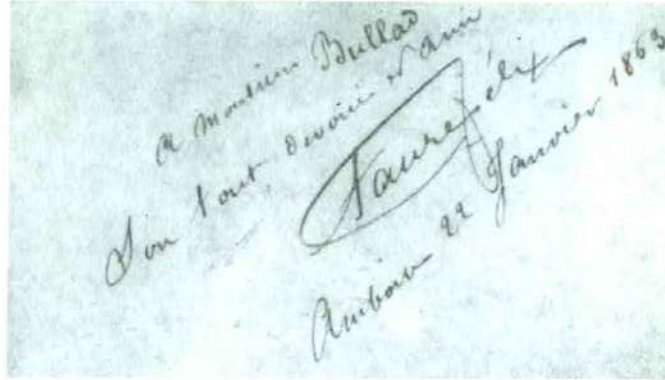 A Monsieur Bullad
Son tout dévoué et ami
Faure Félix
22 Janvier 1863